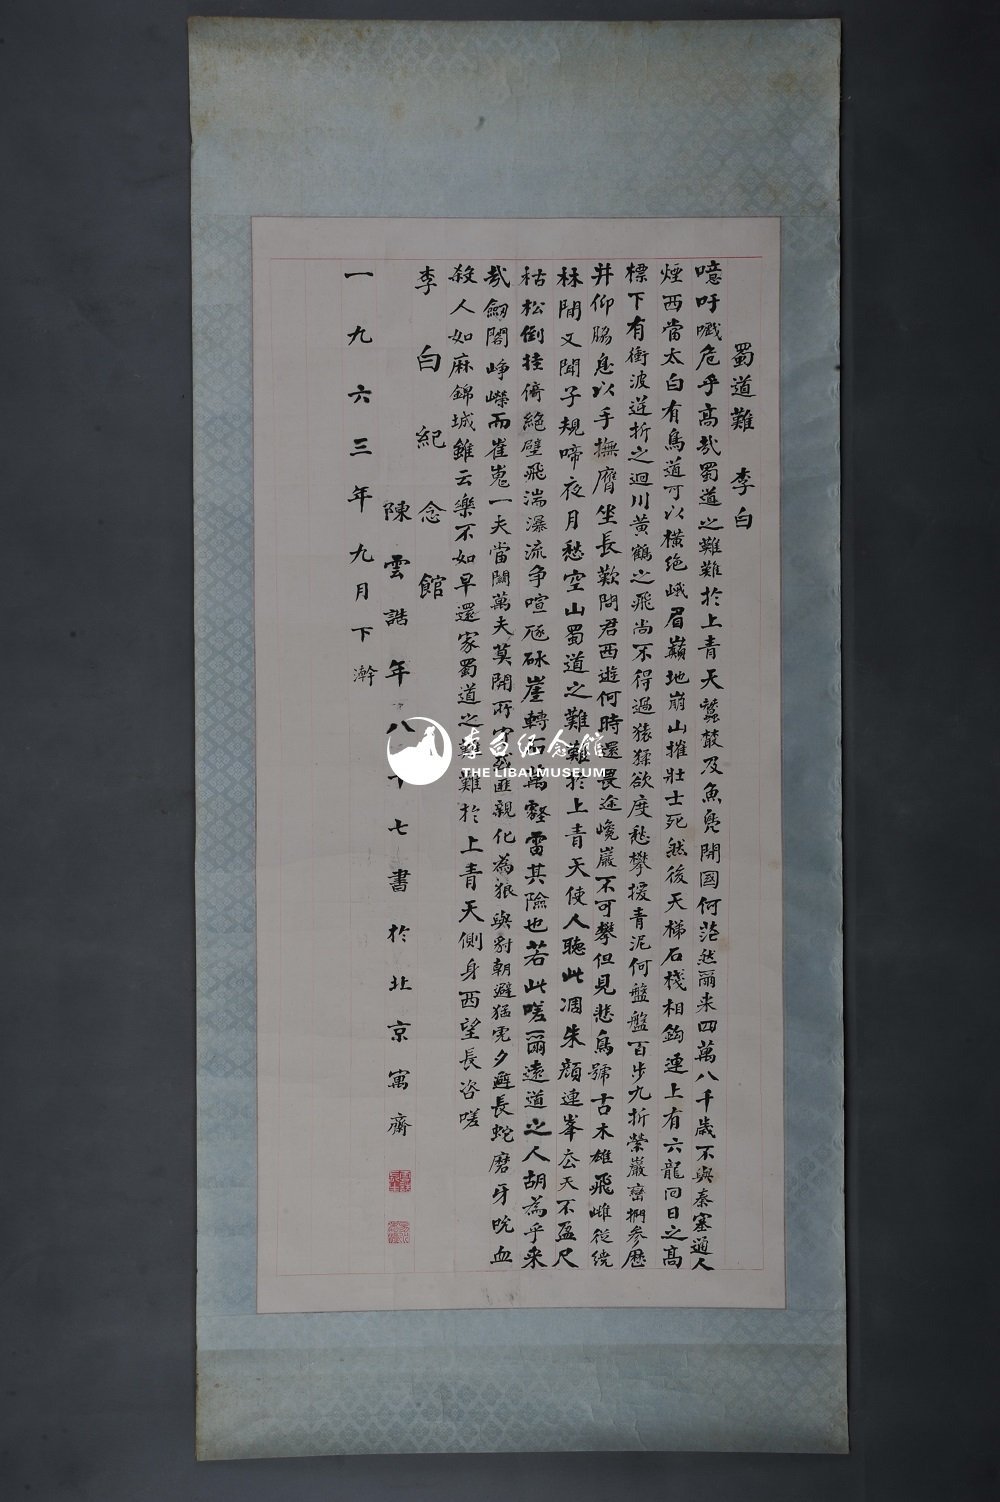 蜀道難　李白
噫吁嚱危乎高哉蜀道之難難於上青天蠶叢及魚鳧開國何茫然爾来四萬八千歲不與秦塞通人
煙西當太白有鳥道可以橫絶峨眉巔地崩山摧壯士死然後天梯石棧相鈎連上有六龍回日之高
標下有衝波逆折之迴川黄鶴之飛尚不得過猿猱欲度愁攀援青泥何盤盤百步九折縈巖巒捫參歷
井仰脇息以手撫膺坐長歎問君西遊何時還畏途巉巖不可攀但見悲鳥號古木雄飛雌從繞
林間又聞子規啼夜月愁空山蜀道之難難於上青天使人聽此凋朱顏連峯去天不盈尺
枯松倒挂倚絶壁飛湍瀑流争喧豗砯崖轉石萬壑雷其險也若此嗟爾遠道之人胡為乎来
哉劒閣崢嶸而崔嵬一夫當關萬夫莫開所守或匪親化為狼與豺朝避猛虎夕避長蛇磨牙吮血
殺人如麻錦城雖云樂不如早還家蜀道之難難於上青天側身西望長咨嗟
李白紀念館
陳雲誥年八十七書於北京寓齋
一九六三年九月下澣
李白纪念馆
THE LIBAI MUSEUM